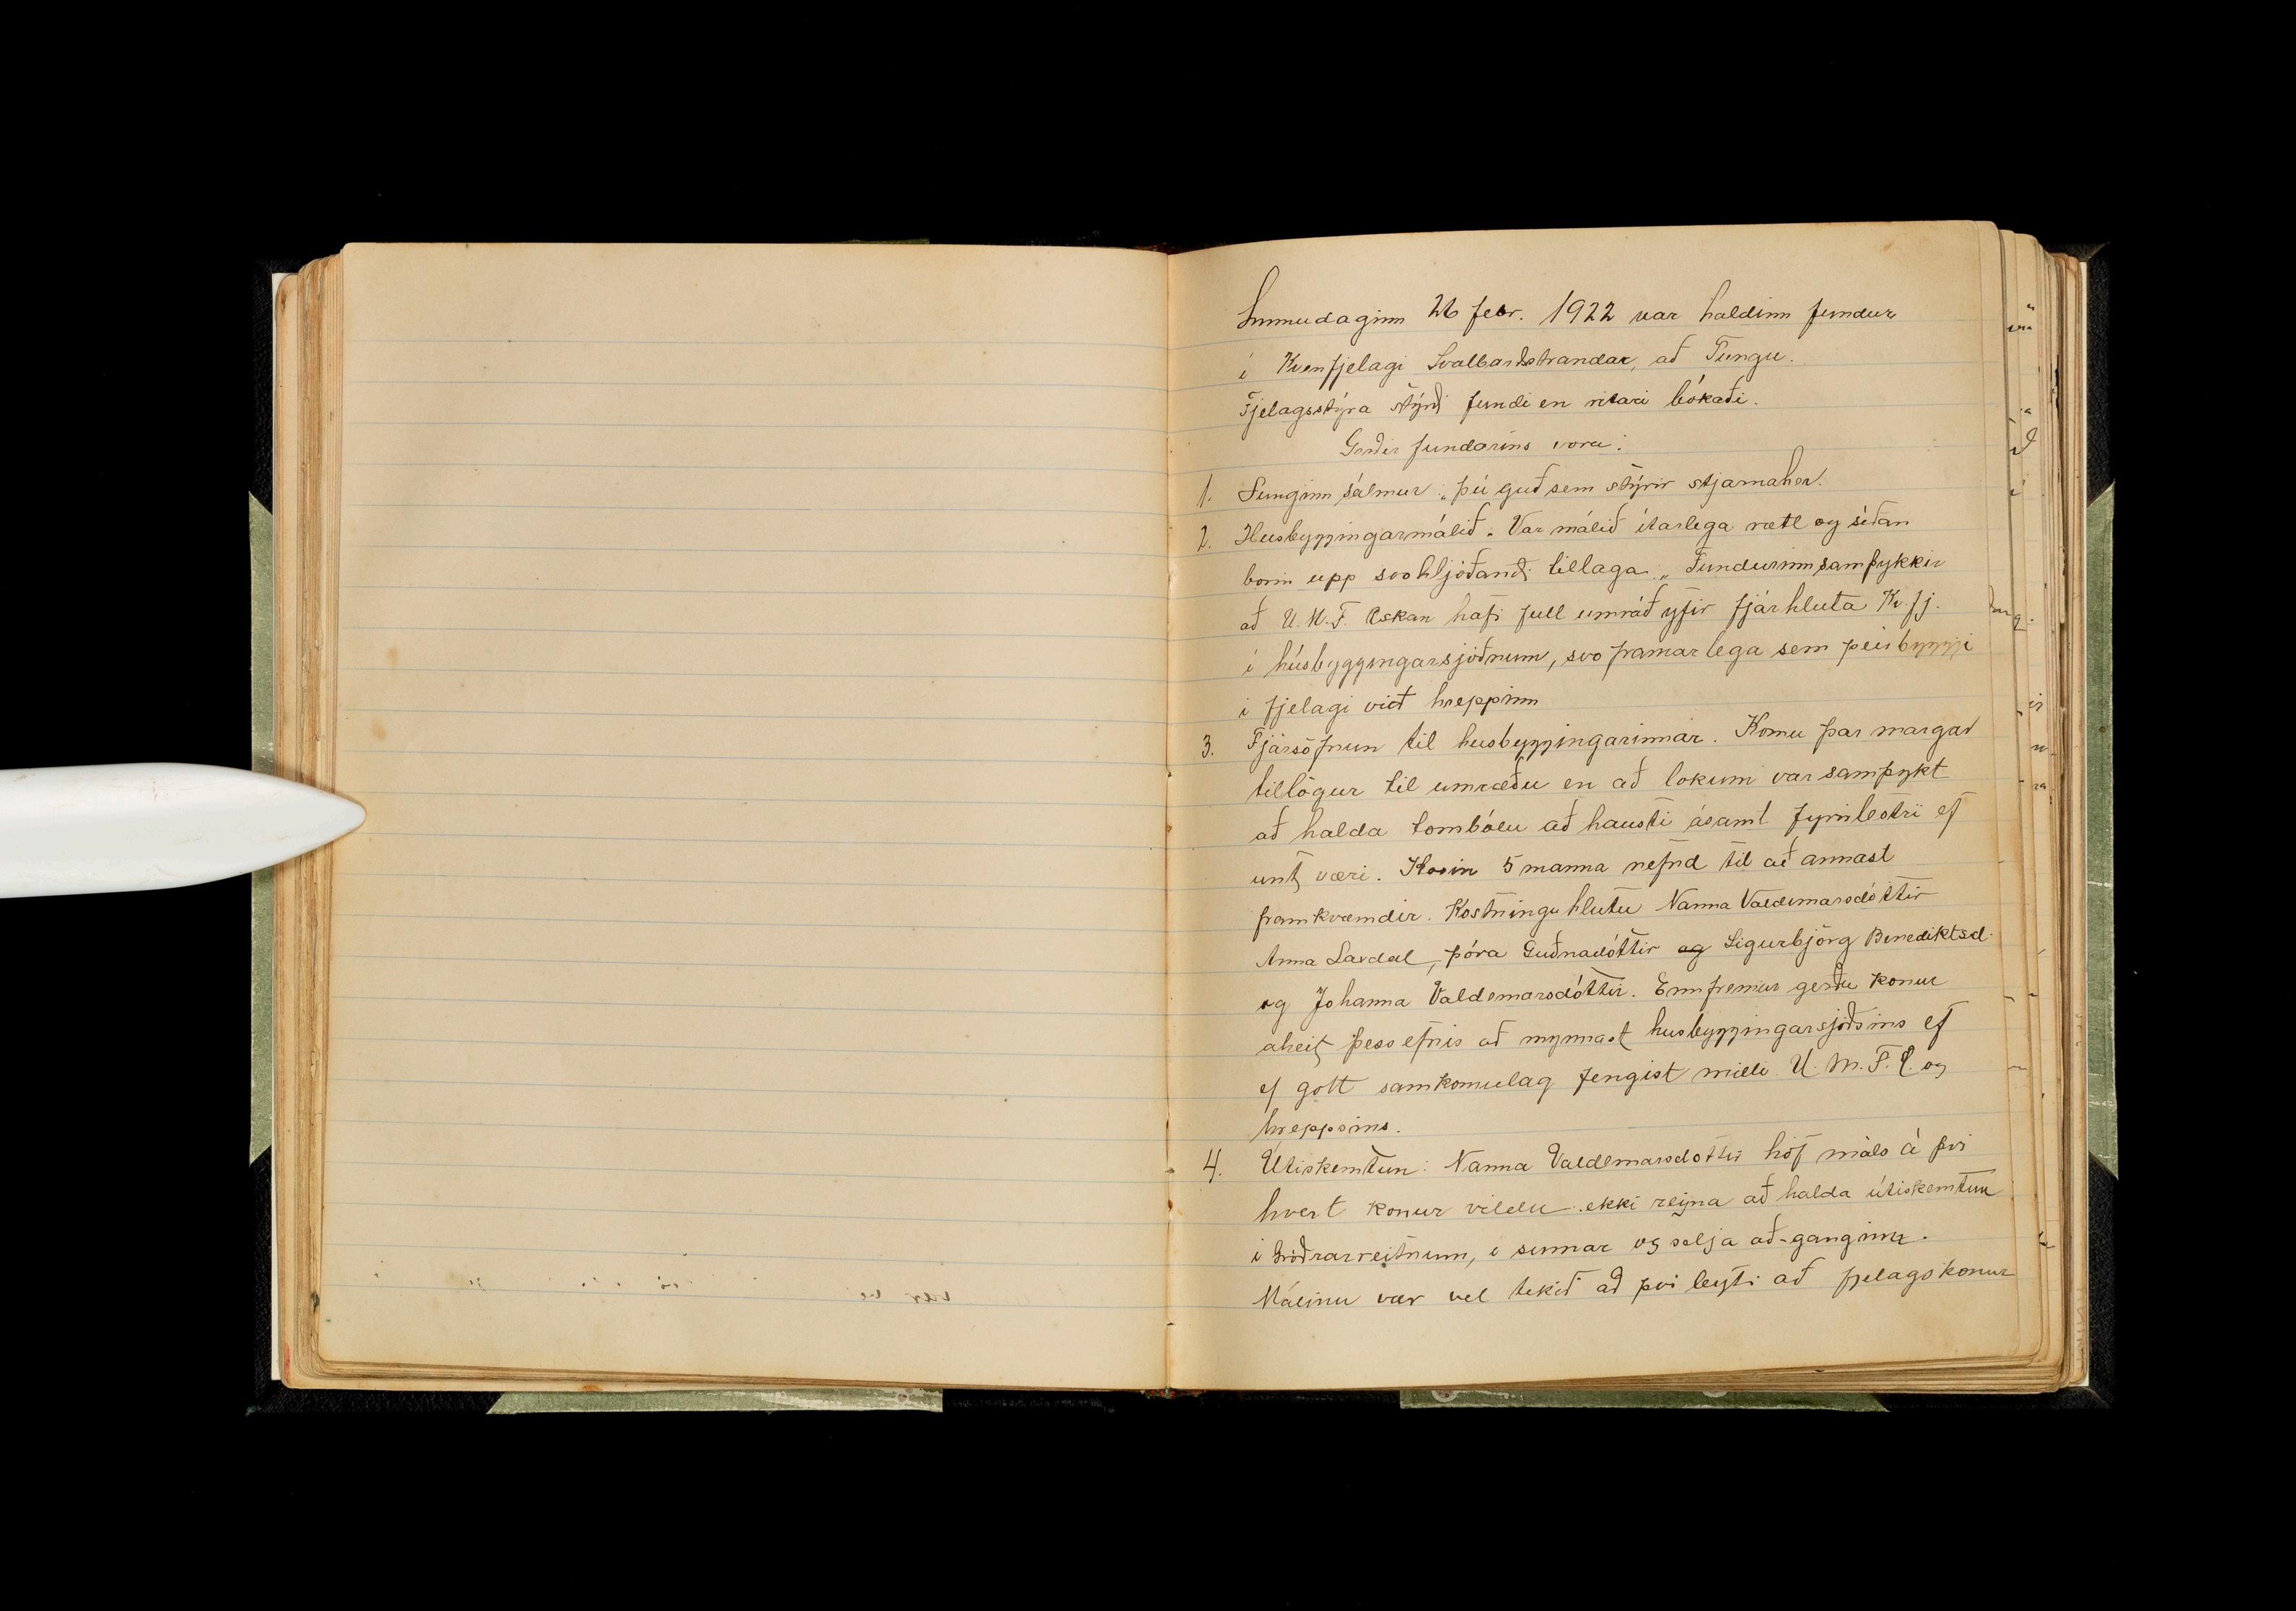 Sunnudaginn 26 febr. 1922 var haldinn fundur
í Kvenfjelagi Svalbardstrandar, að Tungu.
Fjelagsstýra stýrði fundi en ritari bókaði.
Gerðir fundarins voru:
1. Sunginn sálmur: „þú guð sem stýrir stjarnaher.
2. Husbyggingarmálið. Var málið ítarlega rætt og síðan
borin upp svohljóðandi tillaga: „Fundurinn samþykkir
að U.M.F. Æskan hafi full umráð yfir fjárhluta Kv.fj.
í húsbyggingarsjóðnum, svo framarlega sem þeir byggi
i fjelagi við hreppinn
3. Fjársöfnun til husbyggingarinnar. Komu þar margar
tillögur til umræðu en að lokum var samþykt
að halda tombólu að hausti ásamt fyrirlestri ef
unt væri. Kosin 5 manna nefnd til að annast
framkvæmdir. Kostningu hlutu Nanna Valdemarsdóttir
Anna Laxdal, þóra Guðnadóttir og Sigurbjörg Benediktsd.
og Johanna Valdemarsdóttir. Ennfremur gerðu konur
aheit þess efnis að mynnast husbyggingarsjóðsins ef
ef gott samkomulag fengist milli U.M.F. Æ. og
hreppsins.
4. Útiskemtun: Nanna Valdemarsdottir hóf máls á þvi
hvert konur vildu ekki reyna að halda útiskemtun
i gróðrarreitnum, i sumar og selja að-ganginn.
Málinu var vel tekið að þvi leyti að fjelagskonur